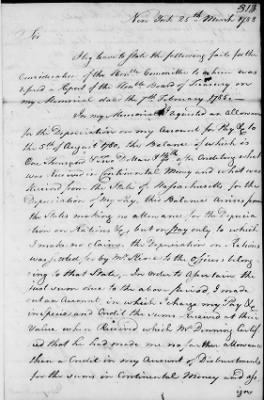 313
New York 25th March 1788
Sir
I beg leave to state the following facts for the
consideration of the Honble Committee to whom was
refered a Report of the Honble Board of Treasury on
my Memorial dated the 7th February 1788.
In my Memorial I requested an Allowance
for the Depreciation on my Account for Pay &c to
the 5th of August 1780, the Balance of which is
One Thousand & Two Dollars after crediting what
was Received in Continental Money and what was
Received from the State of Massachusetts for the
Depreciation of my Pay, this Balance arises from
the States making no allowance for the Deprecia
tion on Rations &c, but on pay only to which
I made no claim, the Depreciation on Rations
was settled for by Mr to the Officers belong
ing to that State, In order to ascertain the
just sum due to the above period, I made
out an Account in which I charge my Pay &c
in specie and Credit the sums Received at their
Value when Received which Mr Denning
ed that he had made me no further Allowance
than a Credit in my Account of Disbursements
for the sums in Continental Money and